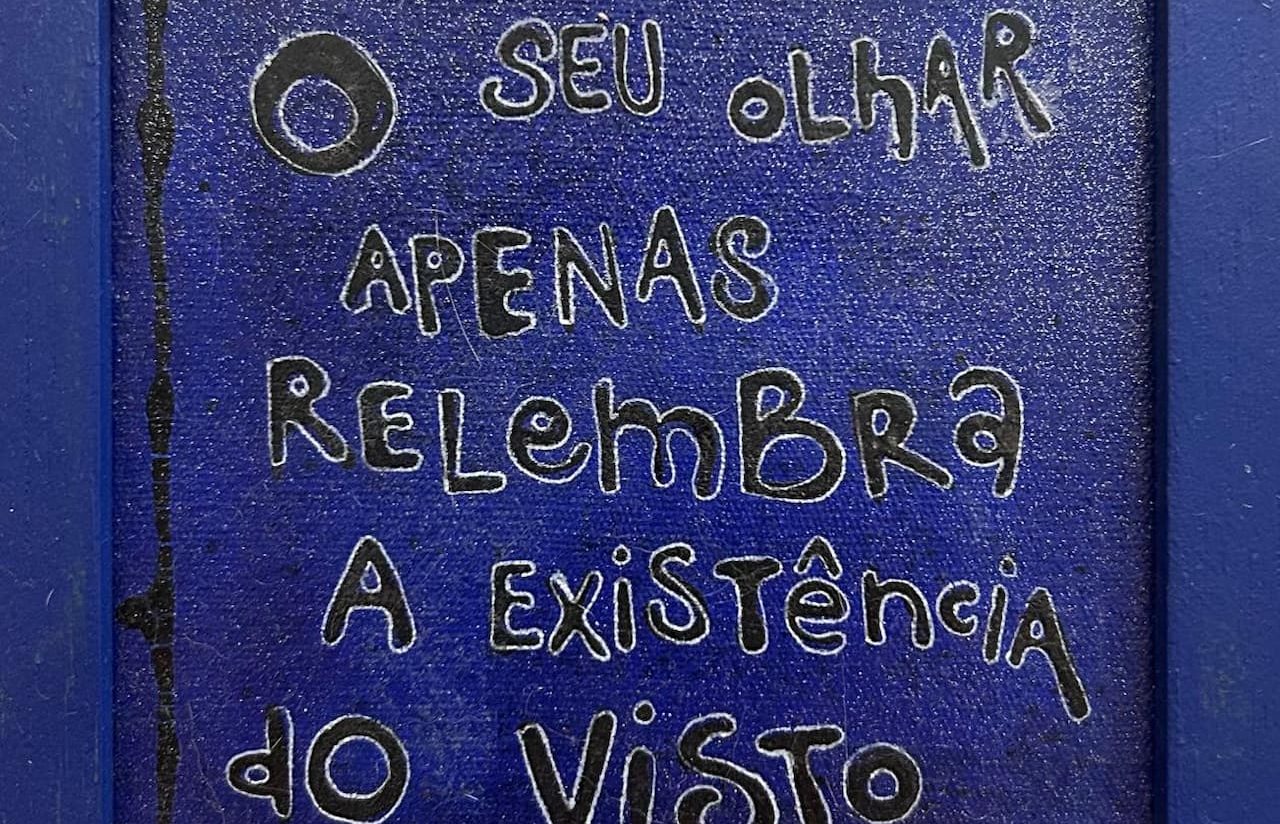 O SEU OLhAR
APENAS
RELemBRa
A EXiSTênciA
do ViSTo